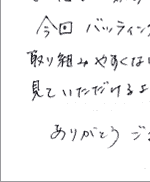 今回 バッティン
取り組みやすくな
見ていただけるよ
ありがとう ご